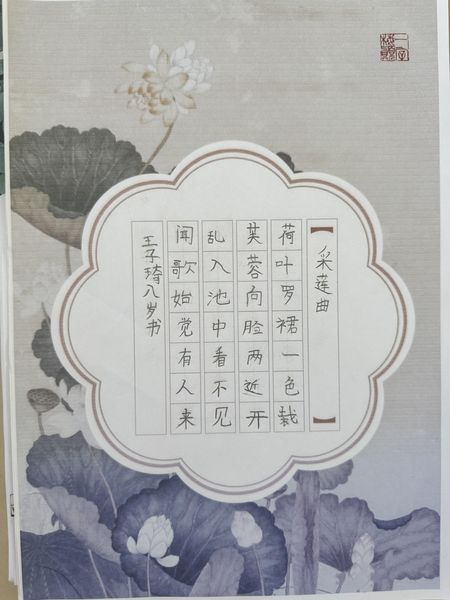 【采莲曲】
荷叶罗裙一色裁
芙蓉向脸两边开
乱入池中看不见
闻歌始觉有人来
王子琦八岁书